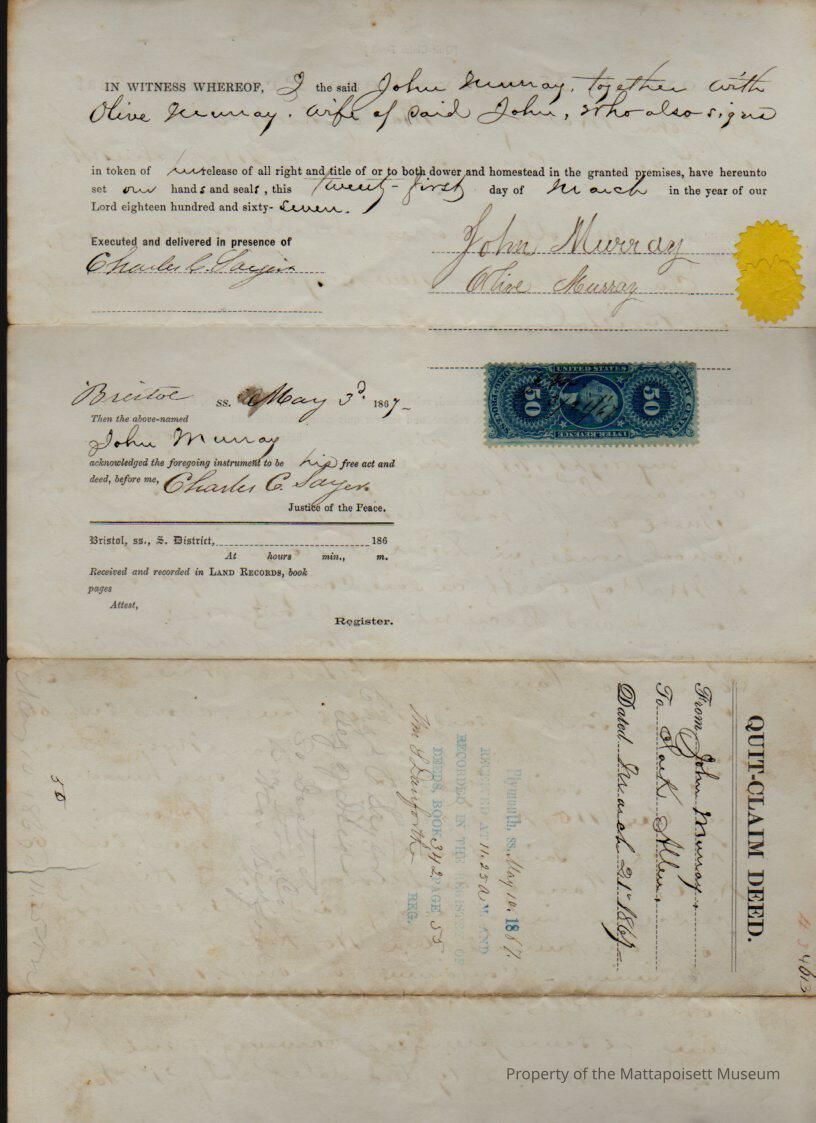 IN WITNESS WHEREOF, I the said John Murray, together with
Olive Murray, wife of said John, who also signs
in token of release of all right and title of or to both dower and homestead in the granted premises, have hereunto
set our hands and seals, this twenty-first day of March in the year of our
Lord eighteen hundred and sixty-seven.
Executed and delivered in presence of
Charles C. Sayer
John Murray
Olive Murray
UNITED STATES
50
50
INTER. REVENUE
FIFTY CENTS
Bristol ss. May 3d 1867
Then the above-named
John Murray
acknowledged the foregoing instrument to be his free act and
deed, before me, Charles C. Sayer
Justice of the Peace.
Bristol, ss., S. District, 186
At hours min., m.
Received and recorded in LAND RECORDS, book
pages
Attest,
Register.
QUIT-CLAIM DEED.
From John Murray,
To Allen,
Dated March 21st 1867
Plymouth, ss. May 10, 1867.
RECEIVED AT 11.25 A M AND
RECORDED IN THE REGISTRY OF
DEEDS, BOOK 342 PAGE 55
Wm S Danforth REG.
50
Property of the Mattapoisett Museum